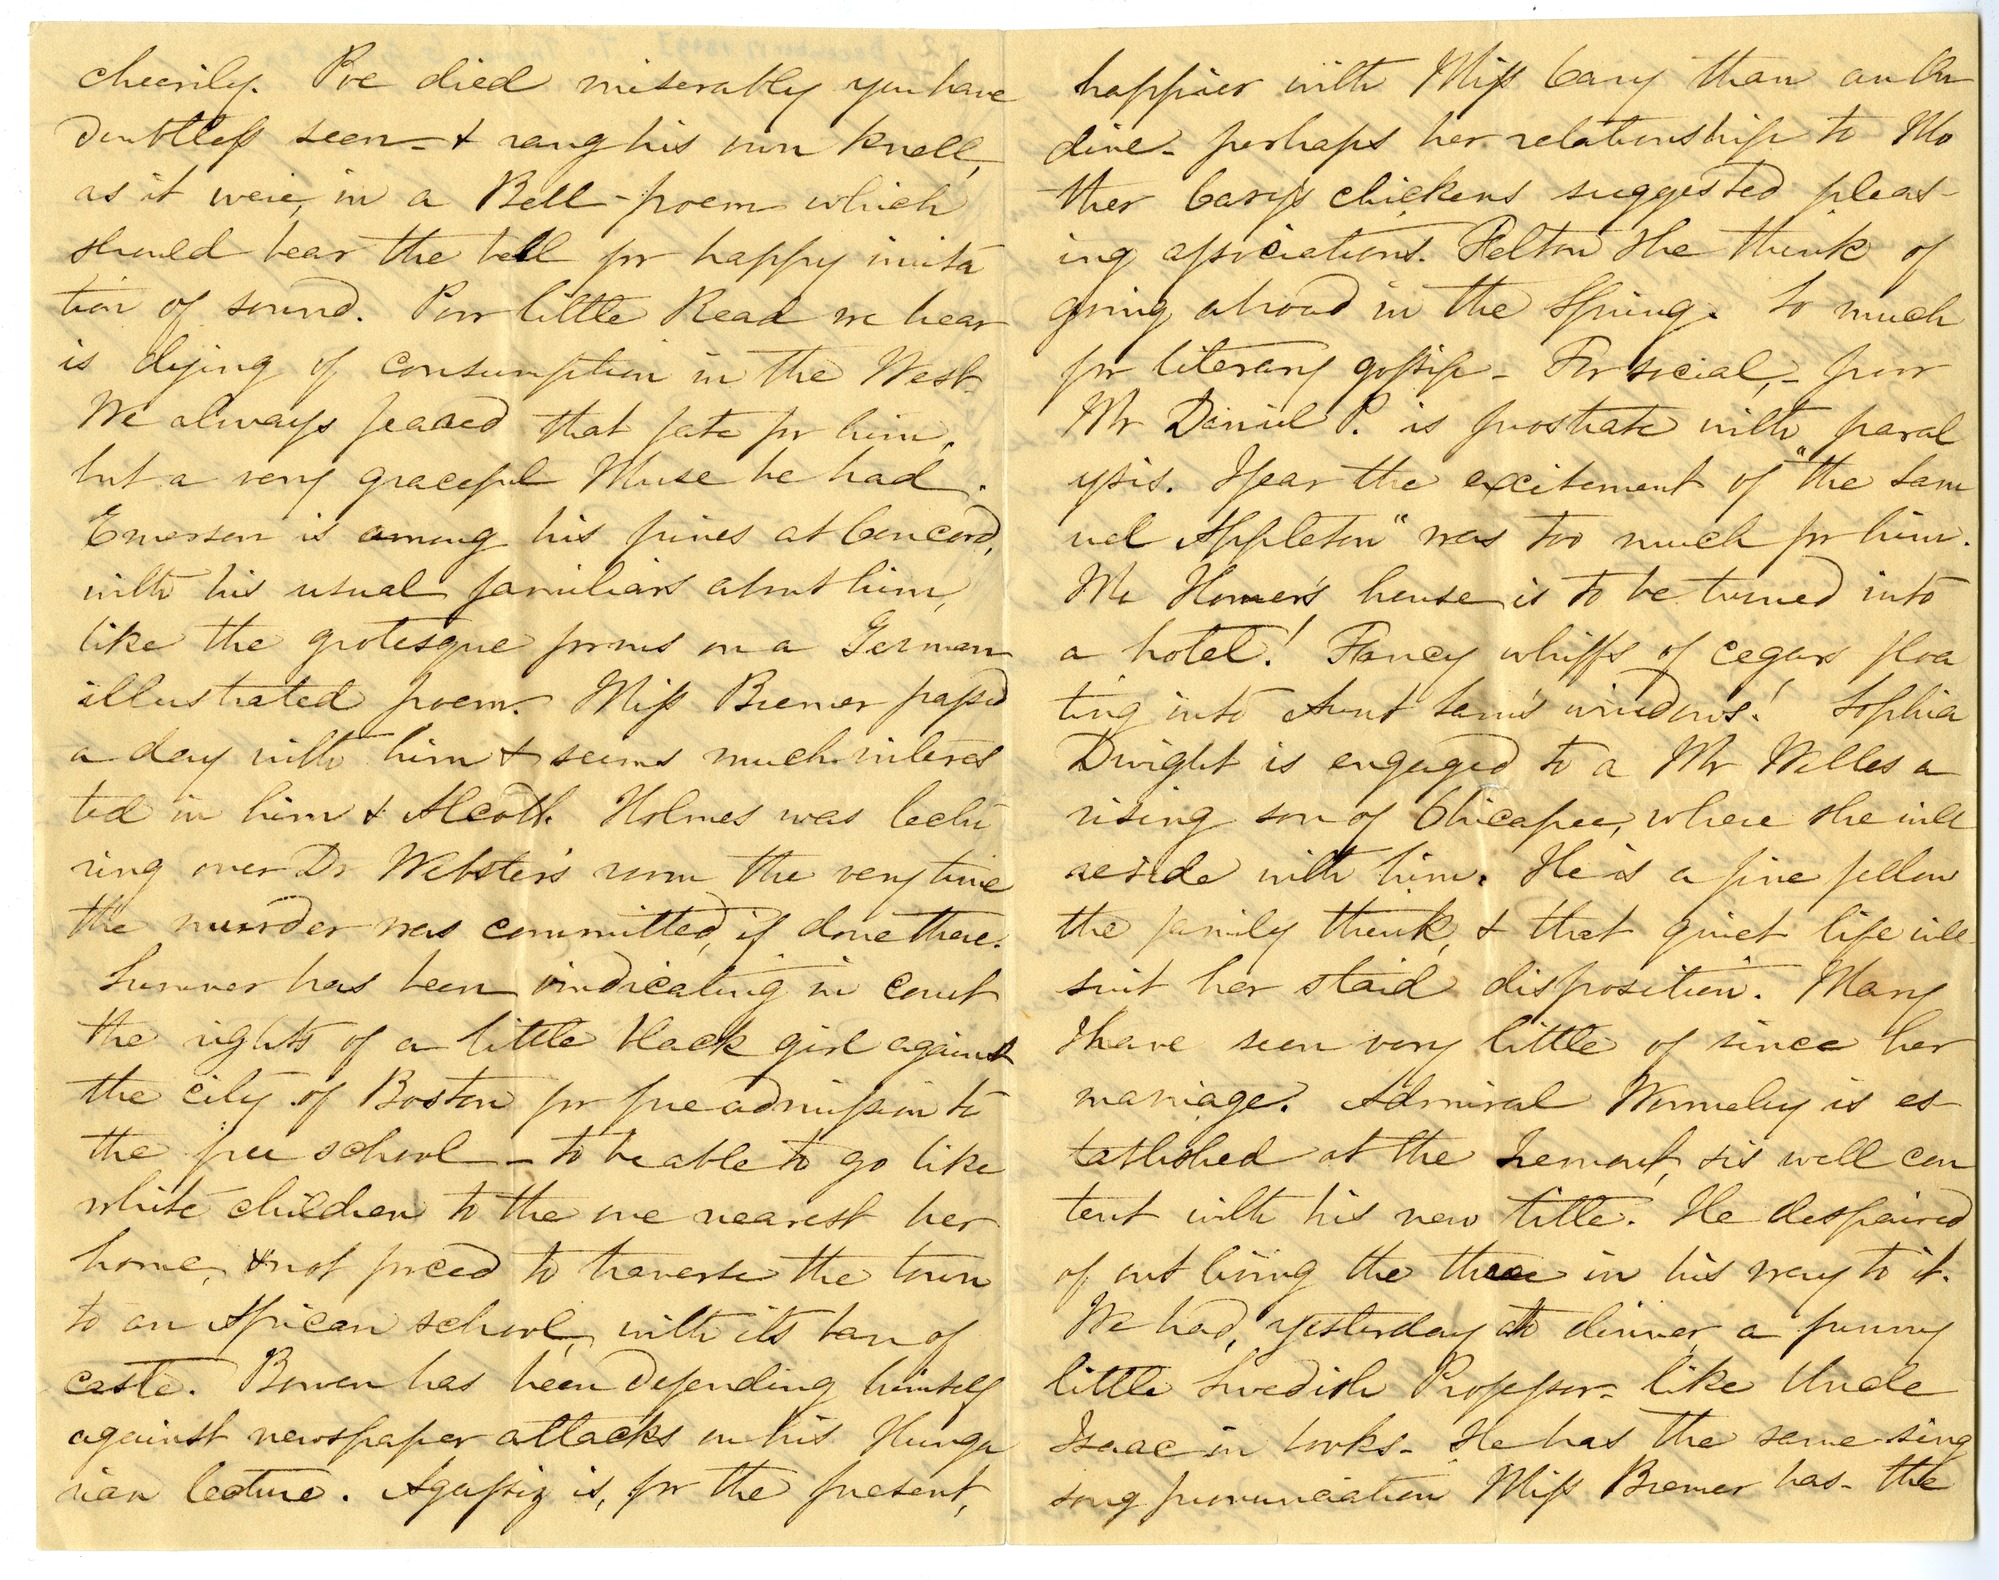 cheerily. Poe died miserably you have
doubtless seen & rang his own knell,
as it were, in a Bell-poem which
should bear the bell for happy imita
tion of sound. Poor little Read we hear
is dying of consumption in the West.
We always feared that fate for him,
but a very graceful Muse he had.
Emerson is among his pines at Concord,
with his usual familiars about him,
like the grotesque forms on a German
illustrated poem. Miss Bremer passed
a day with him & seems much interes
ted in him & Alcott. Holmes was lectu
ring over Dr Webster's room the very time
the murder was committed, if done there.
Sumner has been vindicating in court
the rights of a little black girl against
the city of Boston for free admission to
the free school – to be able to go like
white children to the one nearest her
home, & not forced to traverse the town
to an African school, with its ban of
caste. Bowen has been defending himself
against newspaper attacks on his Hunga
rian lecture. Agassiz is, for the present,
happier with Miss Cary than an On
dine – perhaps her relationship to Mo
ther Cary's chickens suggested pleas-
ing associations. Felton & he think of
going abroad in the Spring. So much
for literary gossip – For social, – poor
Mr Daniel P. is prostrate with paral
ysis. I fear the excitement of "the Sam
uel Appleton" was too much for him.
Mr Homer's house is to be turned into
a hotel! Fancy whiffs of cegars floa
ting into Aunt Sam's windows! Sophia
Dwight is engaged to a Mr Welles a
rising son of Chicapee, where she will
reside with him. He is a fine fellow
the family think, & that quiet life will
suit her staid disposition. Mary
I have seen very little of since her
marriage. Admiral Wormeley is es-
tablished at the Tremont, & is well con
tent with his new title. He despaired
of out living the three in his way to it.
We had, yesterday at dinner, a funny
little Swedish Professor – like Uncle
Isaac in looks – He has the same sing
song pronunciation Miss Bremer has – the